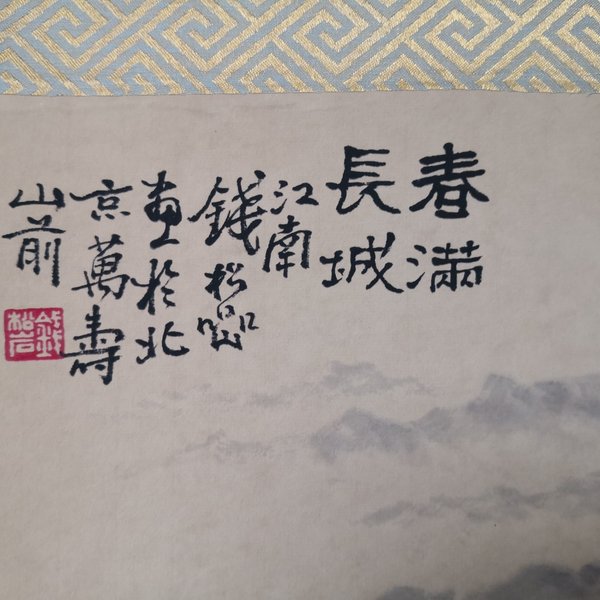 春滿
長城
江南
錢松嵒
畫於北
京萬壽
山前
錢松嵒